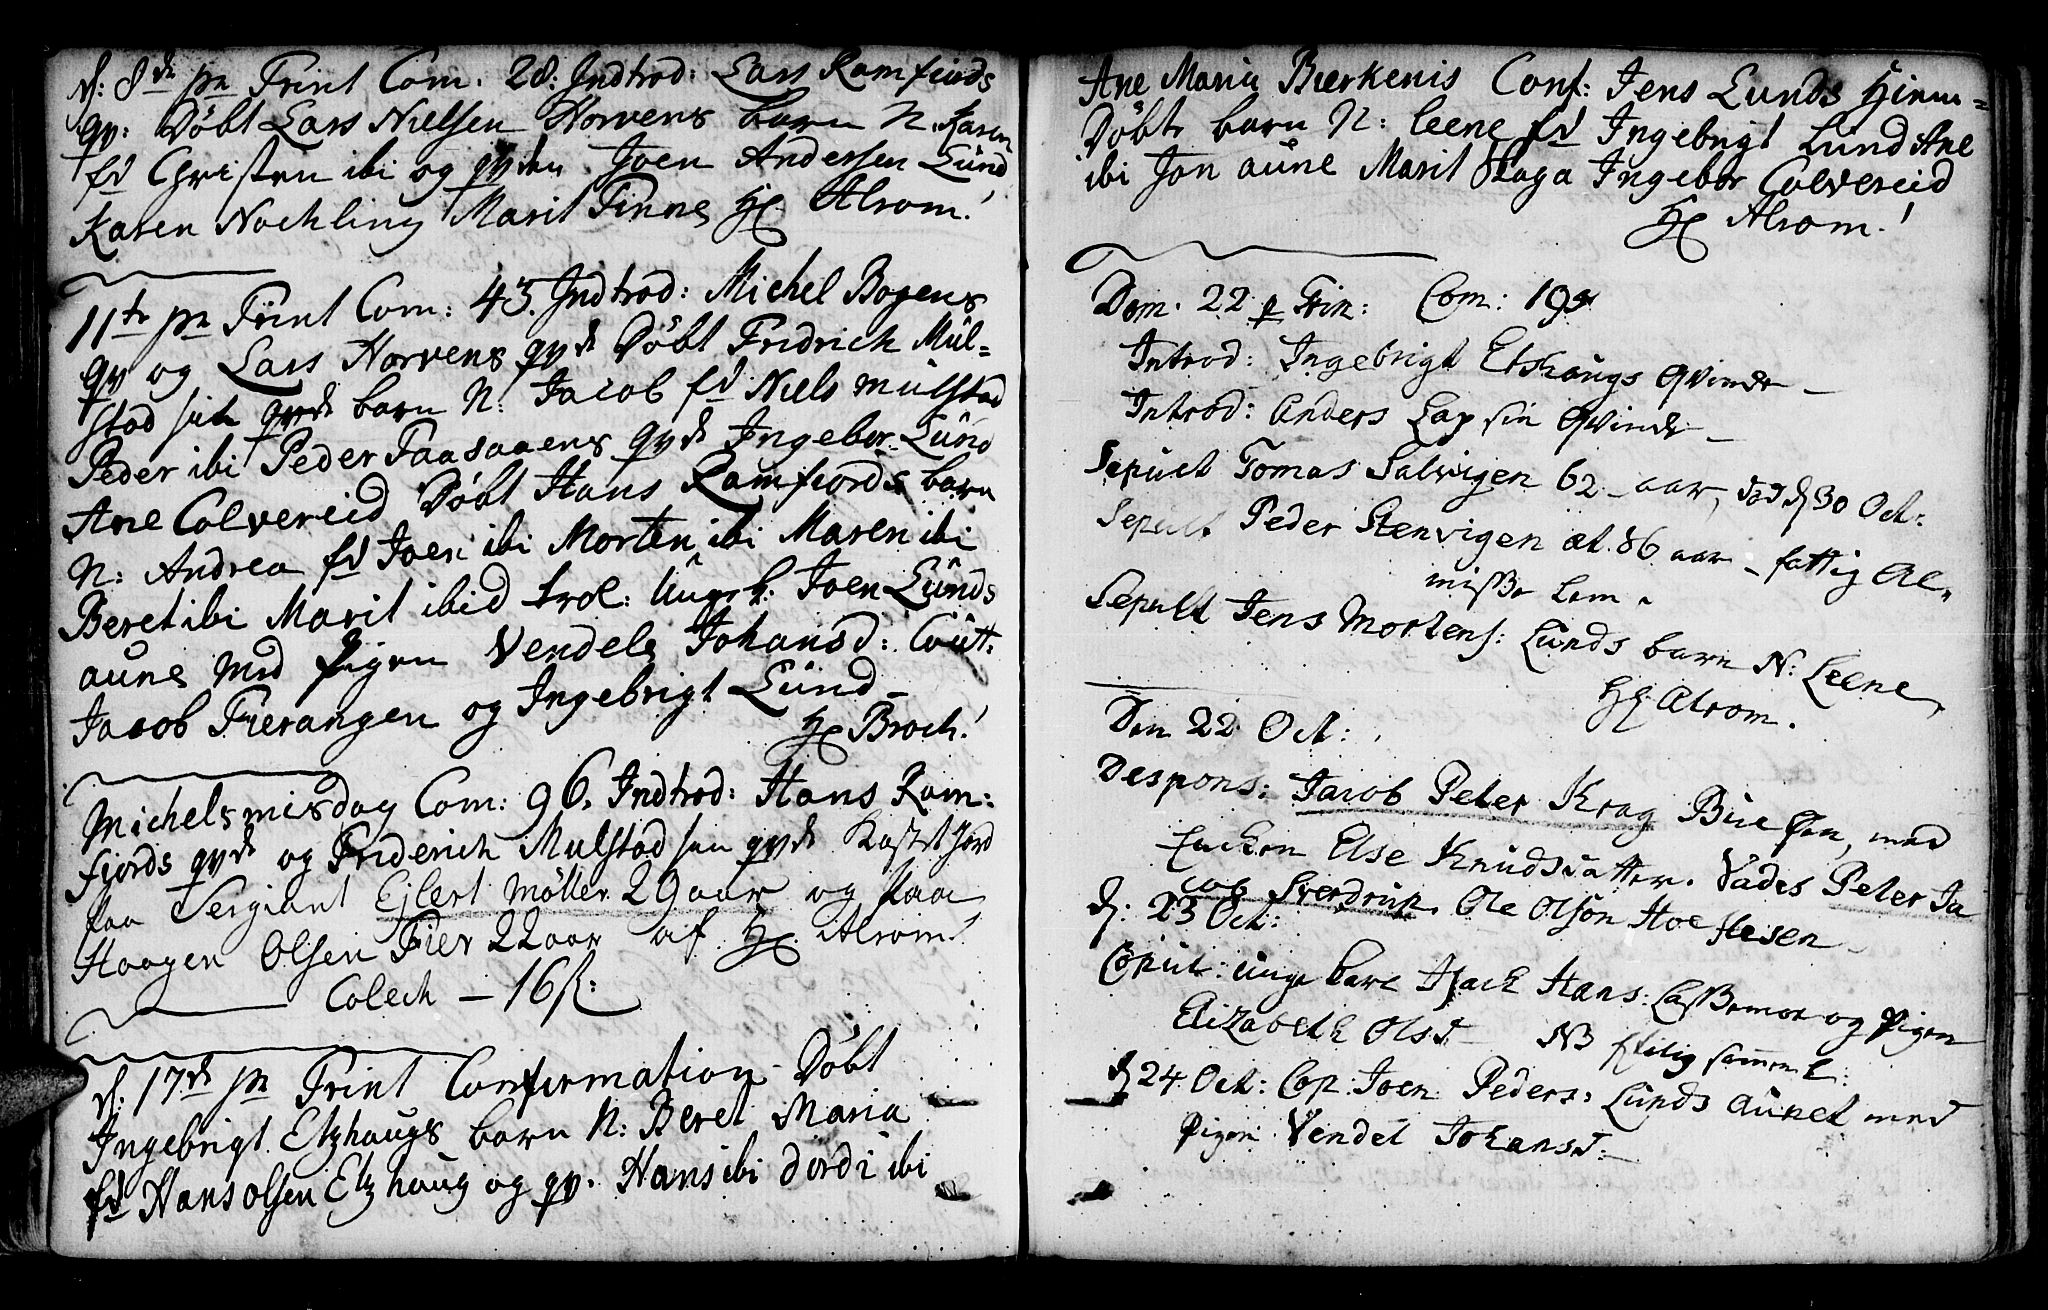 d: 8de pn Trint Com. 28. Indtrod: Lars Ramfiords
qv: Döbt Lars Nielsen Horvens barn N. Karen
fd Christen ibi og qvden Joen Andersen Lund
Karen Nochling Marit Finnes Hr Alrom!
11te pn Trint Com: 43. Indtrod: Michel Bogens
qv og Lars Horvens qvde Döbt Fridrich Mül=
stad sin qvde barn N: Jacob fd Niels Mulstad
Peder ibi Peder Faasaaens qvde Ingebor Lund
Ane Colvereid Döbt Hans Ramfiords barn
N: Andrea fd Joen ibi Morten ibi Maren ibi
Beret ibi Marit ibid trol: Ungk: Joen Lünds
aunes med Pigen Vendele Johansd: Caut:
Jacob Fierangen og Ingebrigt Lünd
Hr Broch!
Michelsmisdag Com: 96. Indtrod: Hans Ram:
fjords qvde og Friderich Mulstad sin qvde Kastet Jord
paa Sergiant Ejlert Möller 29 aar og paa
Haagen Olsen Fier 22 aar af Hr Alrom!
Colech — 16 s:
d: 17de pn Trint Confirmation Döbt
Ingebrigt Etzhaugs barn N: Beret Maria
fd Hans Olsen Etzhaug og qv. Hans ibi Dordi ibi
Ane Maria Bierkenis Conf: Jens Lunds Hiem=
Döbt barn N: Leene fd Ingebrigt Lund Ane
ibi Jon aune Marit Skaga Ingebor Colvereid
Hr Alrom!
Dom. 22 p Trin: Com: 19
Introd: Ingebrigt Etshaugs Qvinde —
Introd: Anders Lap sin Qvinde —
Sepult Tomas Salvigen 62 aar, död d 30 Oct:
Sepult Peder Stenvigen æt. 86 aar — fattig Al=
misse Lem.
Sepult Jens Mortens: Lunds barn N: Leene
Hr Alrom.
Den 22 Oct:
Despons: Jacob Peter Krag Bue, med
Enken Else Knudsdatter. Vades Peter Ja
cob Sverdrup. Ole Olsön Hoe
d: 23 Oct:
Copul: unge karl Isach Hans: og Pigen
Elizabeth Olsd — NB
d 24 Oct: Cop: Joen Peders: Lunds aunet med
Pigen Vendel Johansd —